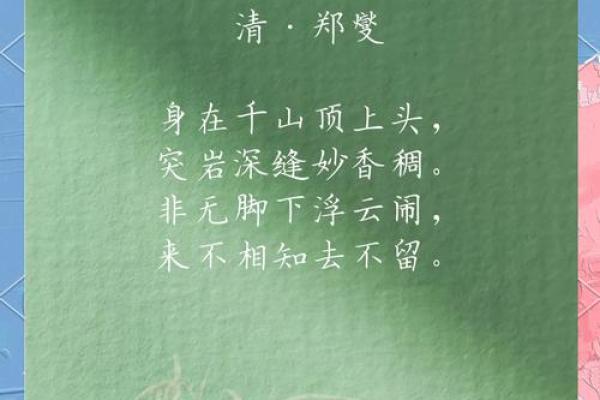 清·郑燮
身在千山顶上头，
突岩深缝妙香稠。
非无脚下浮云闹，
来不相知去不留。